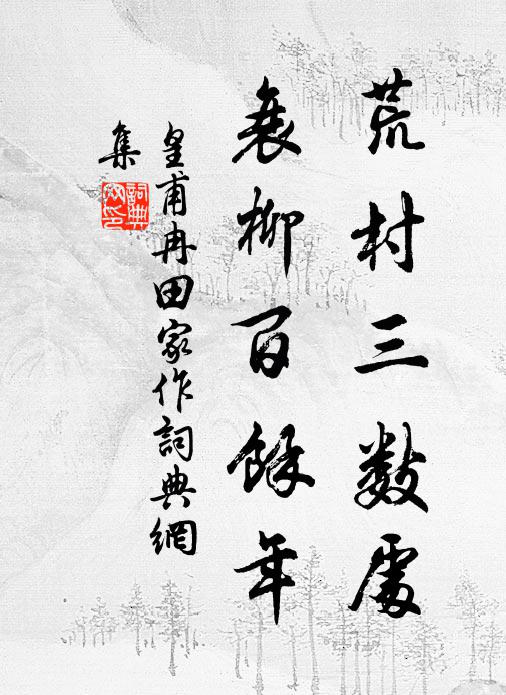 荒村三数處
衰柳百餘年
皇甫冉田家作詞典網
集
詞典網印